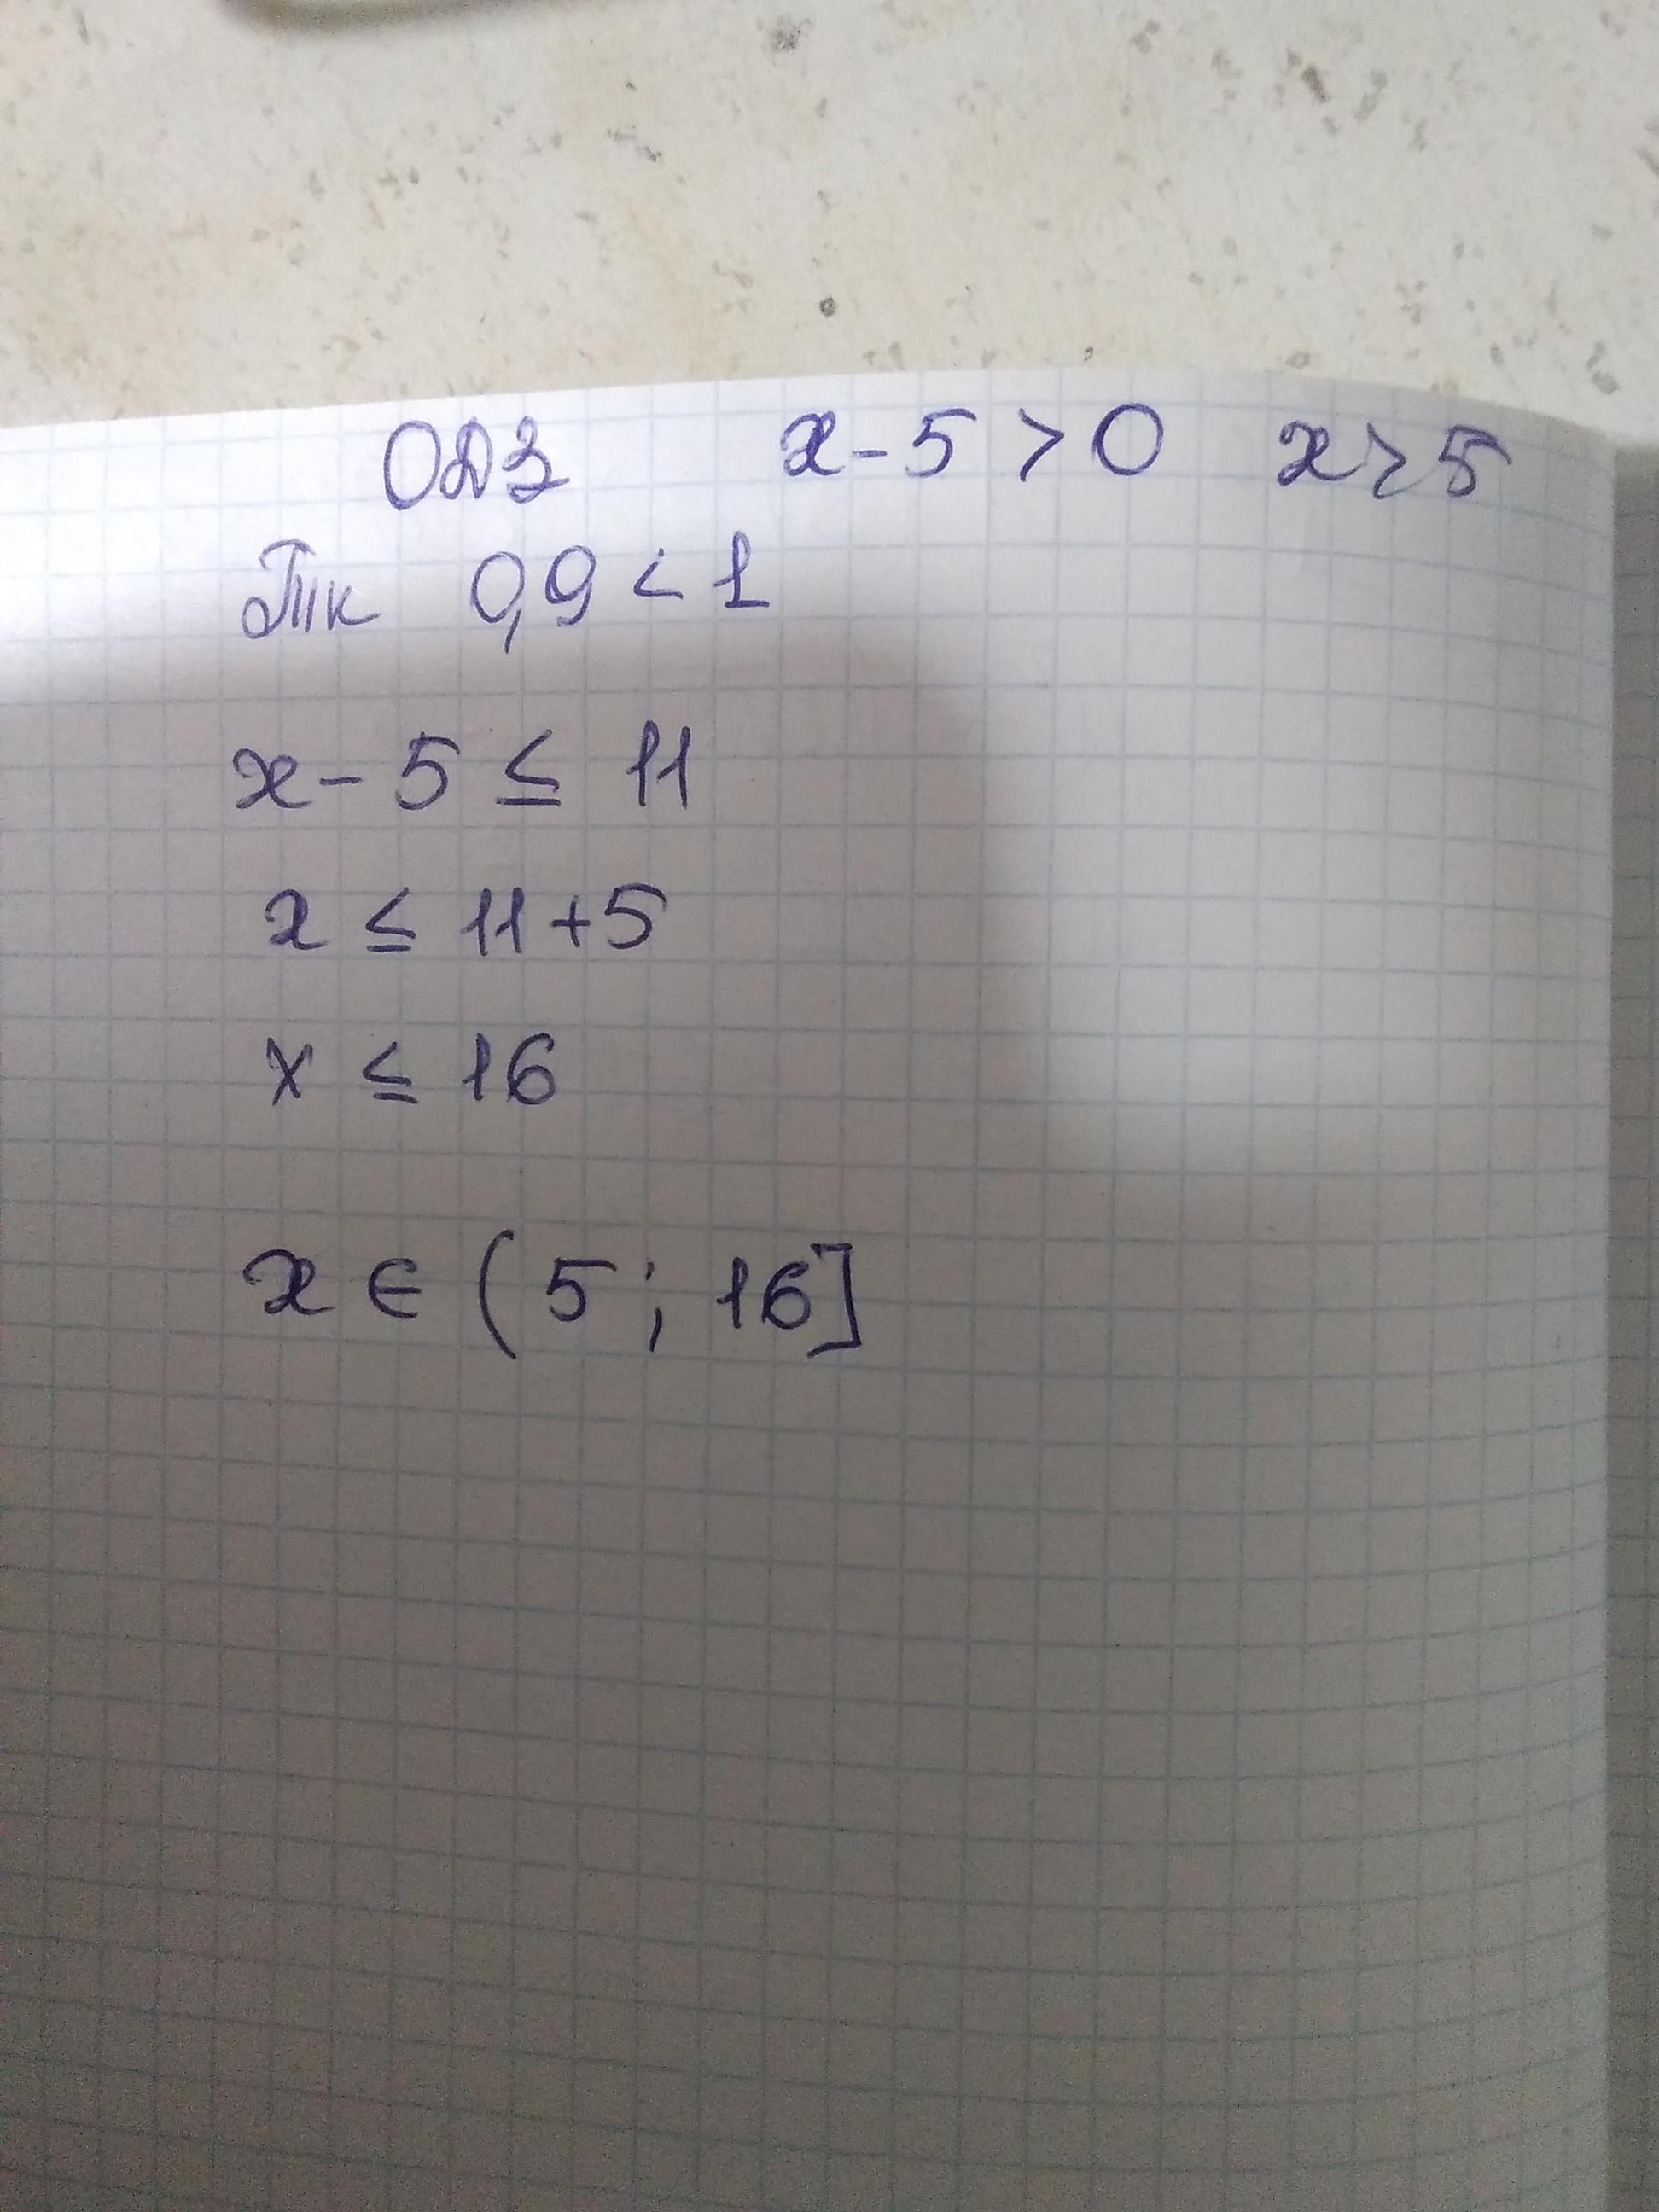 ОДЗ x-5>0 x>5
Тк 0,9<1
x-5≤11
x≤11+5
x≤16
x∈(5;16]